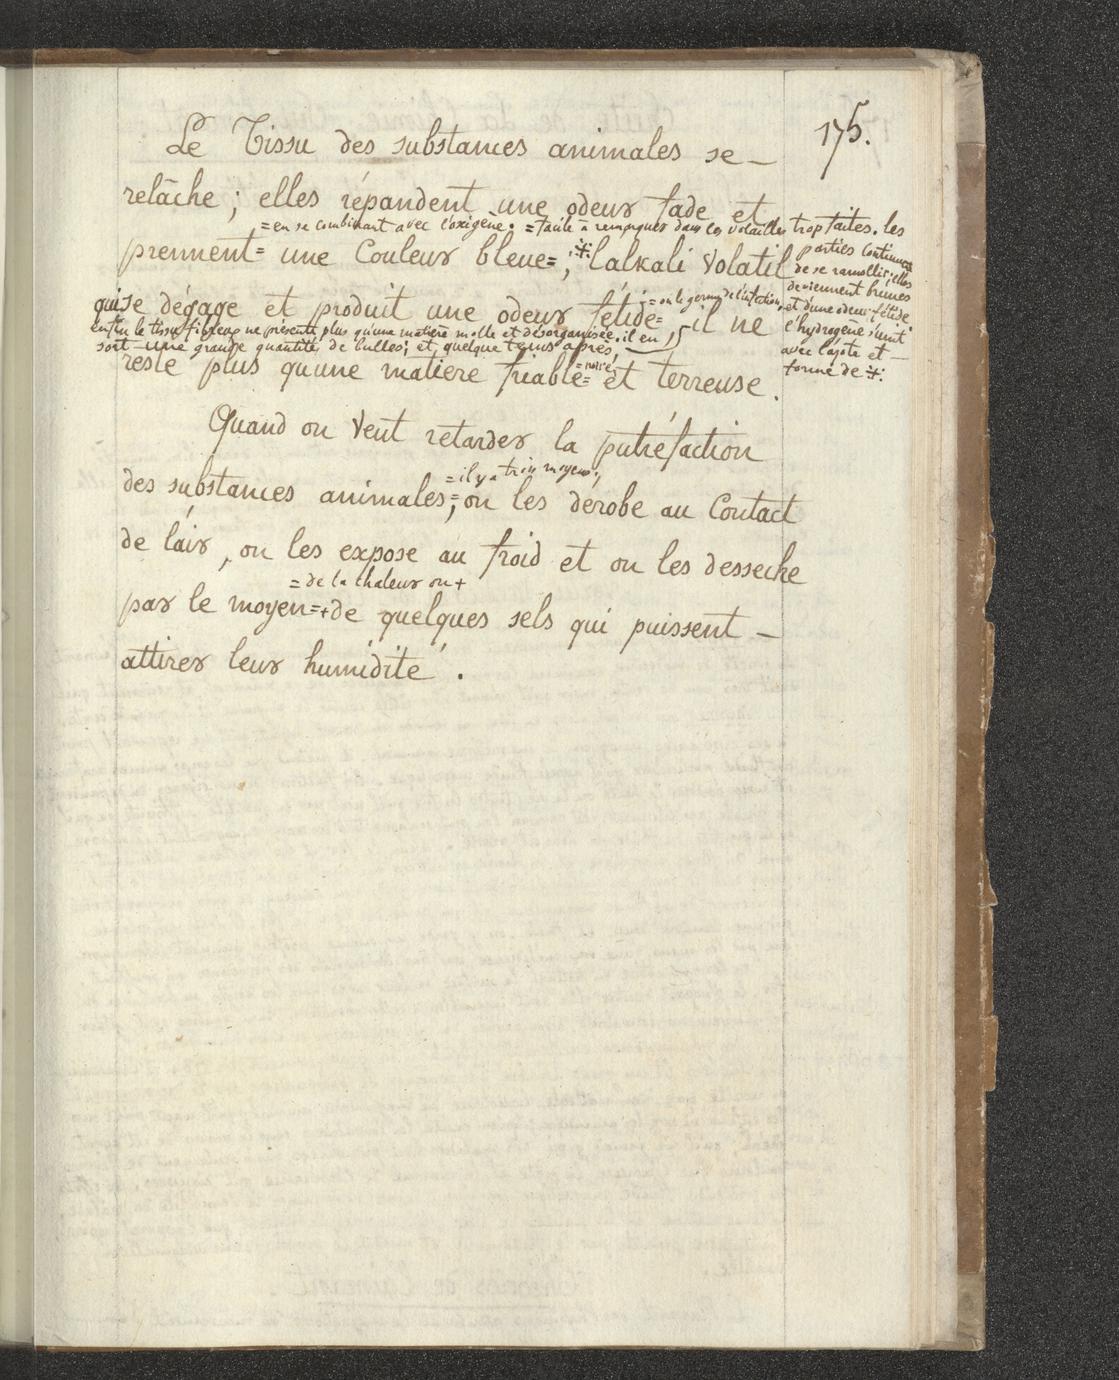 175.
Le Tissu des substances animales se_
relâche ; elles répandent une odeur fade et
= en se combinant avec l'oxigène. = facile à remarquer dans les volailles trop faites. les
parties continuent
prennent= une Couleur bleue= ; lalkali Volatil
de se ramollir; elles
deviennent brunes
et d'une odeur fétide
qui se dégage et produit une odeur fétide= il ne
; = ou le germe de l'infection,
l'hydrogène s'unit
avec l'azote et _
forme de
enfin le tissu fibreux ne présente plus qu'une matière molle et désorganisée. il en
sort une grande quantité de bulles; et quelque tems après,
reste plus qu'une matière friable= et terreuse.
= noire,
Quand on veut retarder la putréfaction
= il y a trois moyens;
des substances animales=; on les dérobe au Contact
de láir, on les expose au froid et on les desseche
= de la chaleur ou +
par le moyen=+ de quelques sels qui puissent _
attirer leur humidité .